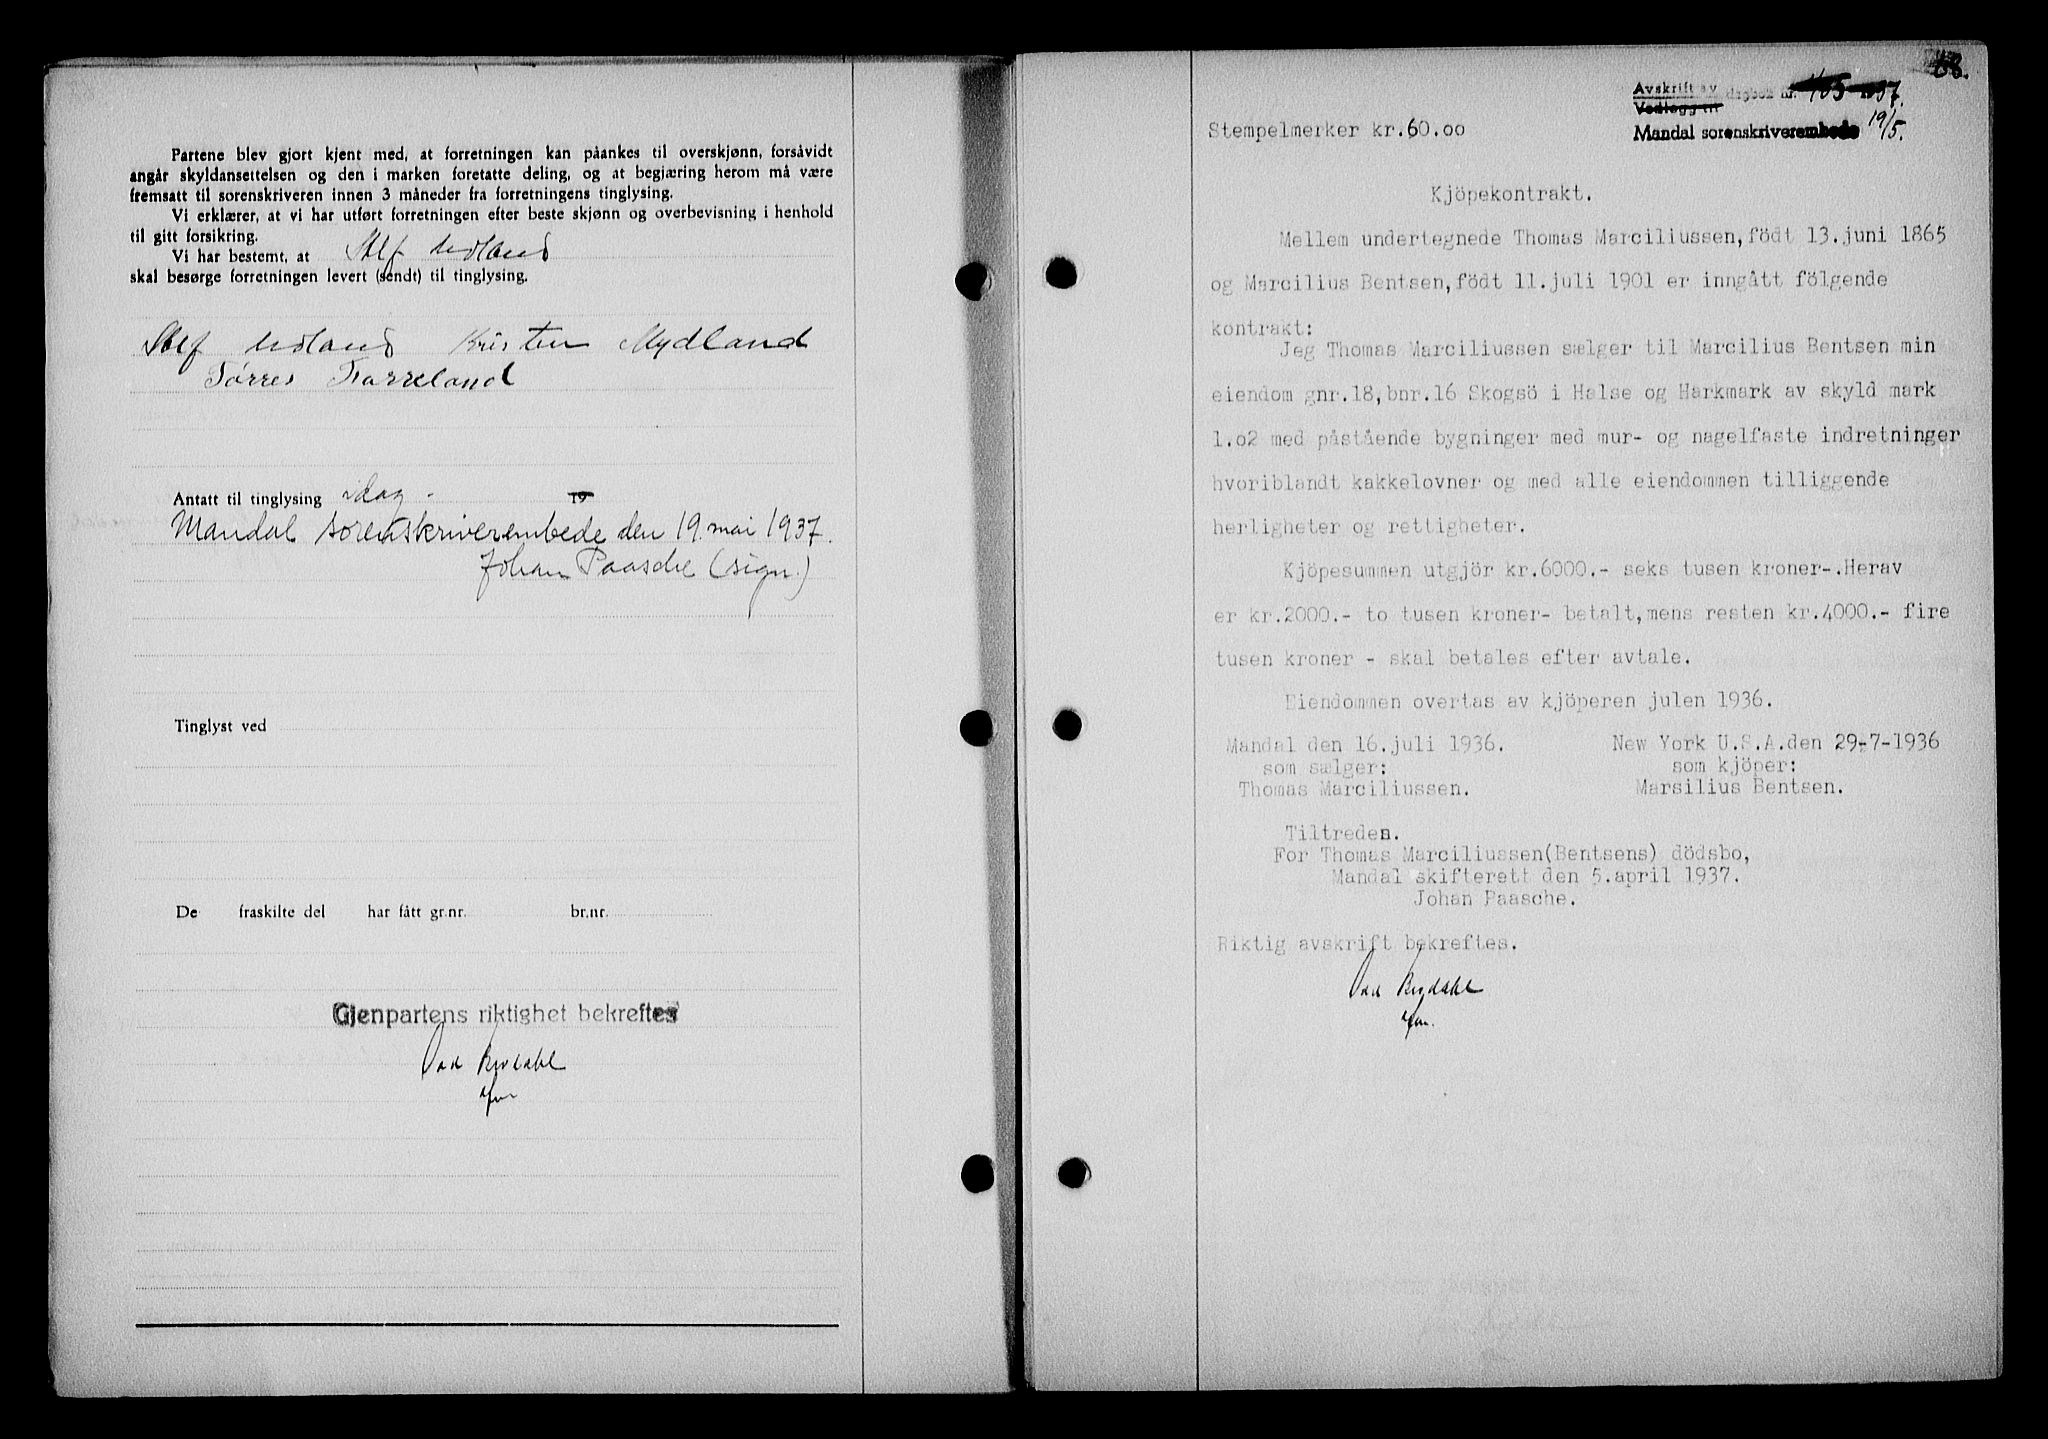 Partene blev gjort kjent med, at forretningen kan påankes til overskjønn, forsåvidt
angår skyldansettelsen og den i marken foretatte deling, og at begjæring herom må være
fremsatt til sorenskriveren innen 3 måneder fra forretningens tinglysing.
Vi erklærer, at vi har utført forretningen efter beste skjønn og overbevisning i henhold
til gitt forsikring.
Vi har bestemt, at Alf Udland
skal besørge forretningen levert (sendt) til tinglysing.
Alf Udland Kristen Mydland
Tørres Farreland
Antatt til tinglysing idag. 19
Mandal sorenskriverembede den 19. mai 1937.
Johan Paasche (sign.)
Tinglyst ved
De fraskilte del har fått gr.nr. br.nr.
Gjenpartens riktighet bekreftes
68.
Avskrift av
Vedlegg til dagbok nr. 165 1937.
Mandal sorenskriverembede 19/5.
Stempelmerker kr.60.oo
Kjöpekontrakt.
Mellem undertegnede Thomas Marciliussen, födt 13.juni 1865
og Marcilius Bentsen, födt 11.juli 1901 er inngått fölgende
kontrakt:
Jeg Thomas Marciliussen sælger til Marcilius Bentsen min
eiendom gnr.18, bnr.16 Skogsö i Halse og Harkmark av skyld mark
1.o2 med påstående bygninger med mur- og nagelfaste indretninger
hvoriblandt kakkelovner og med alle eiendommen tilliggende
herligheter og rettigheter.
Kjöpesummen utgjör kr.6000.- seks tusen kroner-.Herav
er kr.2000.- to tusen kroner- betalt, mens resten kr.4000.- fire
tusen kroner - skal betales efter avtale.
Eiendommen overtas av kjöperen julen 1936.
Mandal den 16.juli 1936. New York U.S.A.den 29-7-1936
som sælger: som kjöper:
Thomas Marciliussen. Marsilius Bentsen.
Tiltreden.
For Thomas Marciliussen(Bentsens) dödsbo,
Mandal skifterett den 5.april 1937.
Johan Paasche.
Riktig avskrift bekreftes.